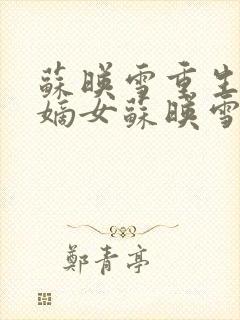 蘇暎雪重生
嫡女蘇暎雪
鄭青亭